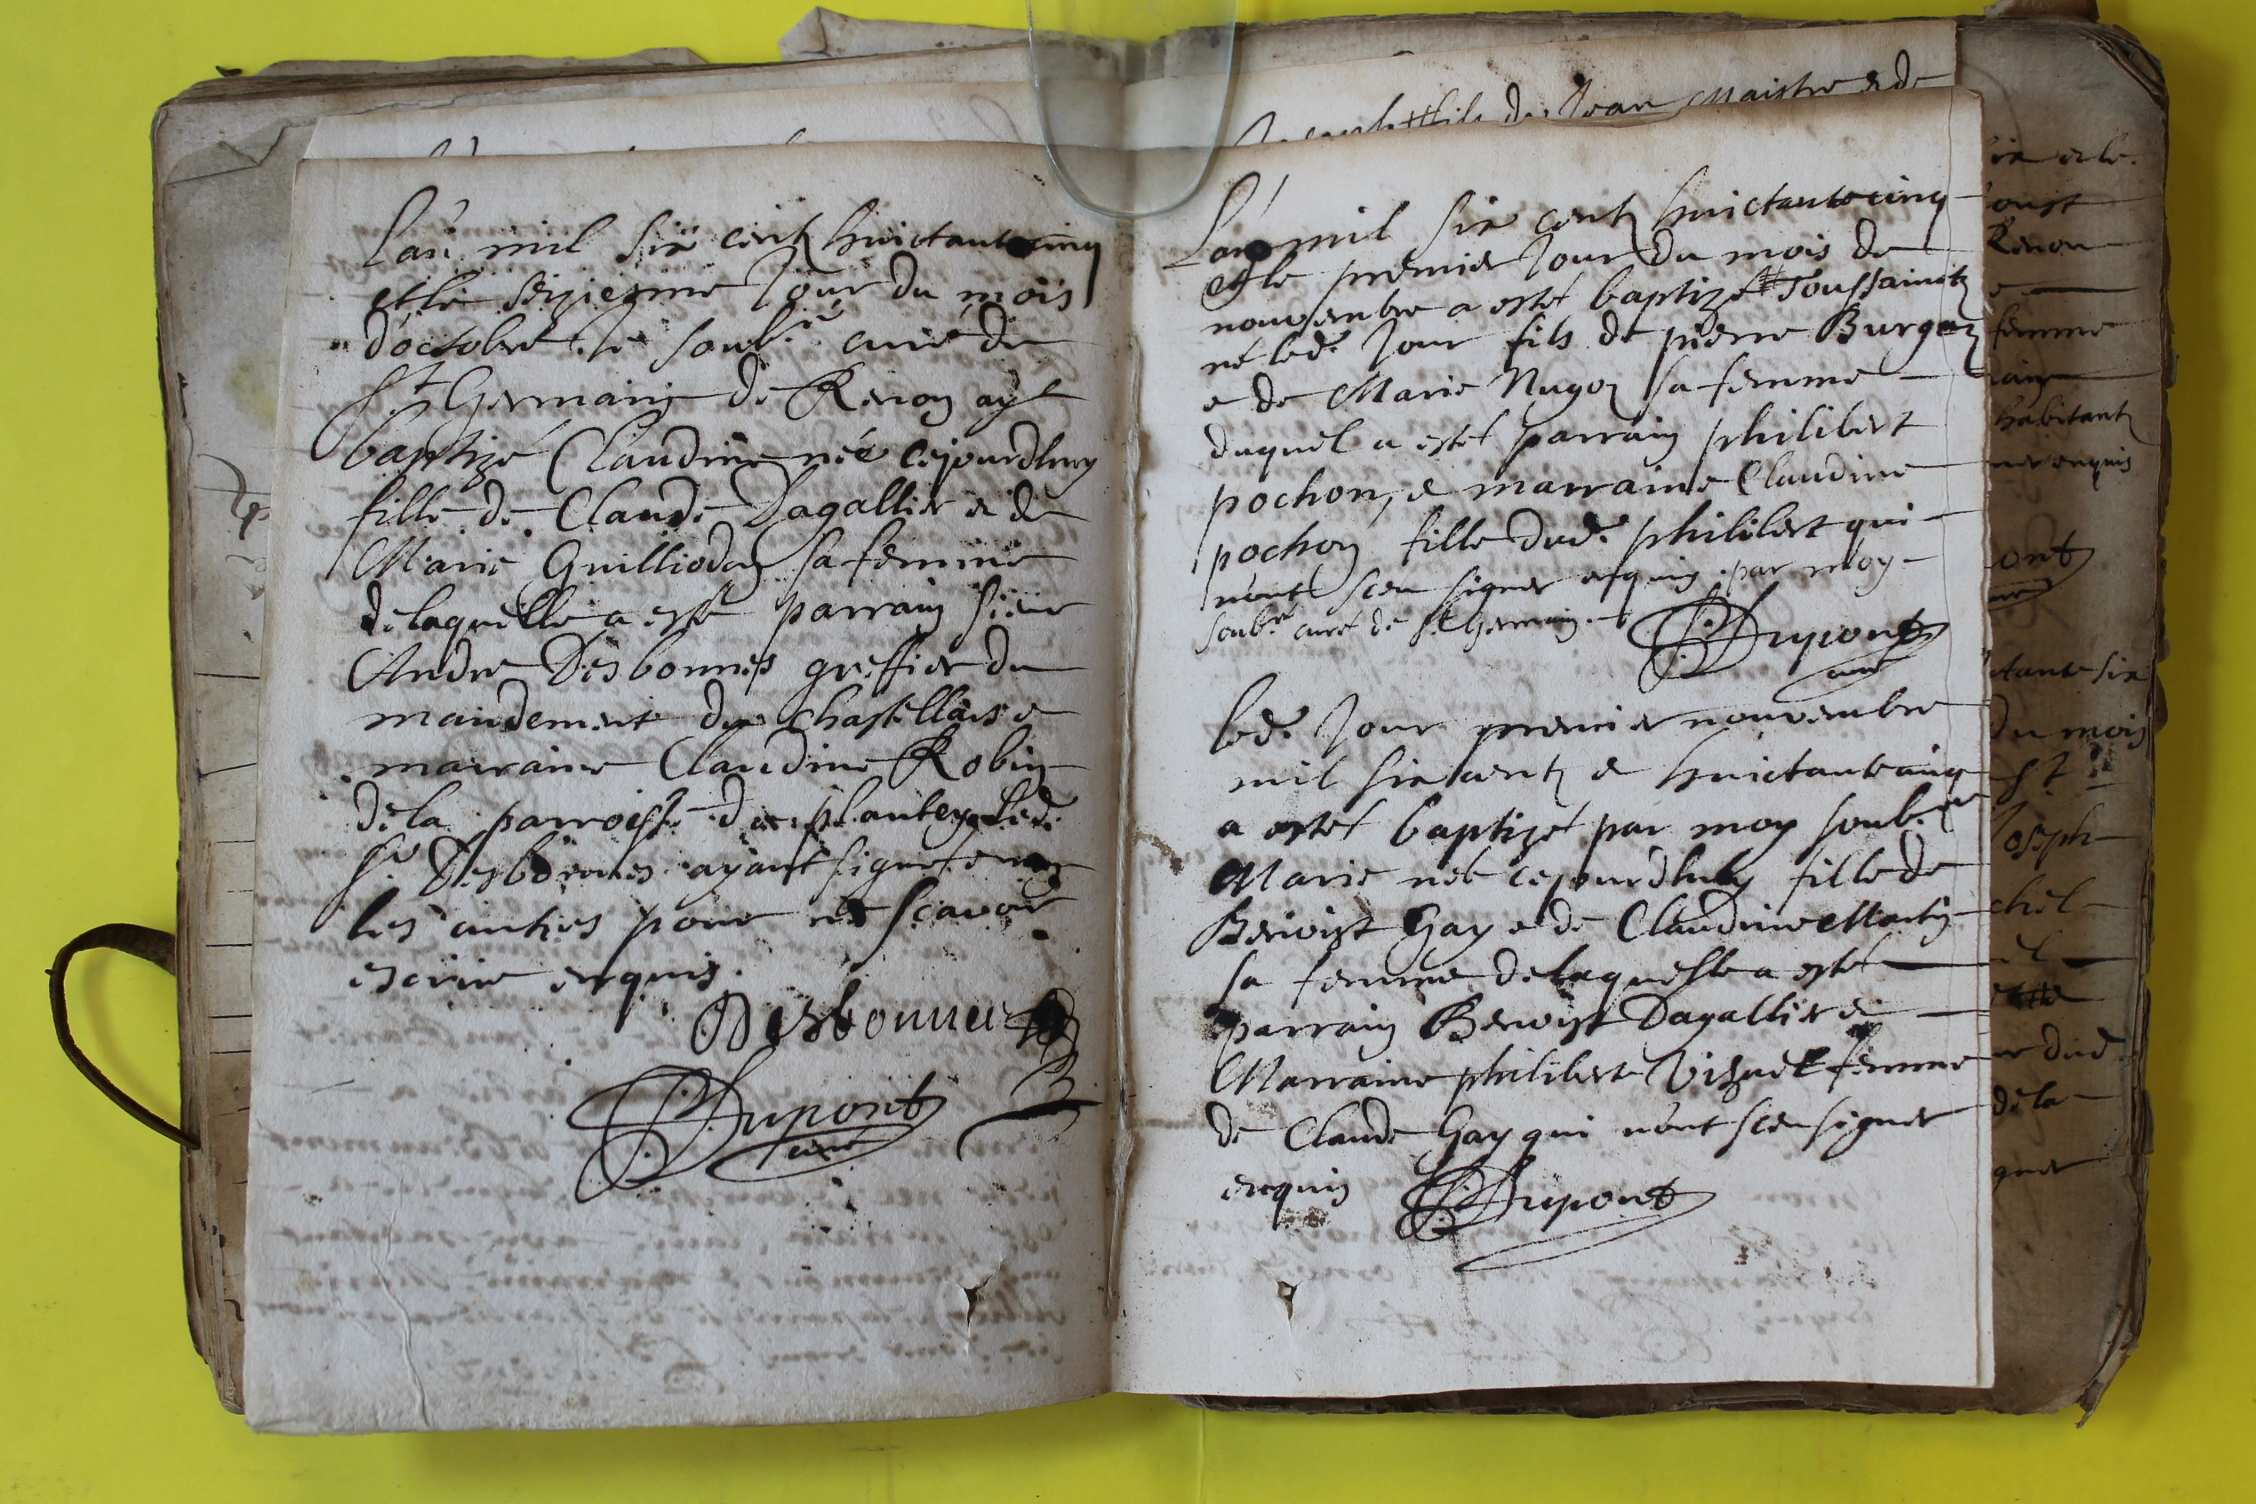 L'an mil six centz huictantecinq
et le seziesme Jour du mois
d'octobre Je soub.né curé de
St Germain de Renon ay
baptizé Claudine née cejourdhuy
fille de Claude Dagallier et de
Marie Guilliodon sa femme
de laquelle a esté parrain sieur
Andre Desbonnes greffier du
mandement du Chastellars e
marraine Claudine Robin
de la parroisse du plantey Led.
Sr Desbonnes ayant signé e non
les autres pour ne scavoir
escrire enquis.
Desbonnes
Dupont
curé
de Jean Maistre e de
L'an mil six centz huictantecinq
et le premier Jour du mois de
nouvembre a estet baptizé Toussainctz
né led. Jour fils de pierre Burgaz
e de Marie Nugoz sa femme
duquel a estet parrain philibert
pochon, e marraine Claudine
pochon fille dud. philibert qui
n'ont sceu signer enquis par moy
soub.né curet de St Germain
Dupont
curé
led. Jour premier nouvembre
mil six centz e huictantecinq
a estet baptizet par moy soub.né
Marie née cejourdhuy fille de
Benoist Gay e de Claudine Martin
sa femme de laquelle a estet
parrain Benoist Dagallier e
Marraine philiberte Vizuet femme
de Claude Gay qui n'ont sceu signer
enquis
Dupont
femme
habitantz
enquis
ont
tante six
du mois
St
Joseph
chel
dud.
de la
gner